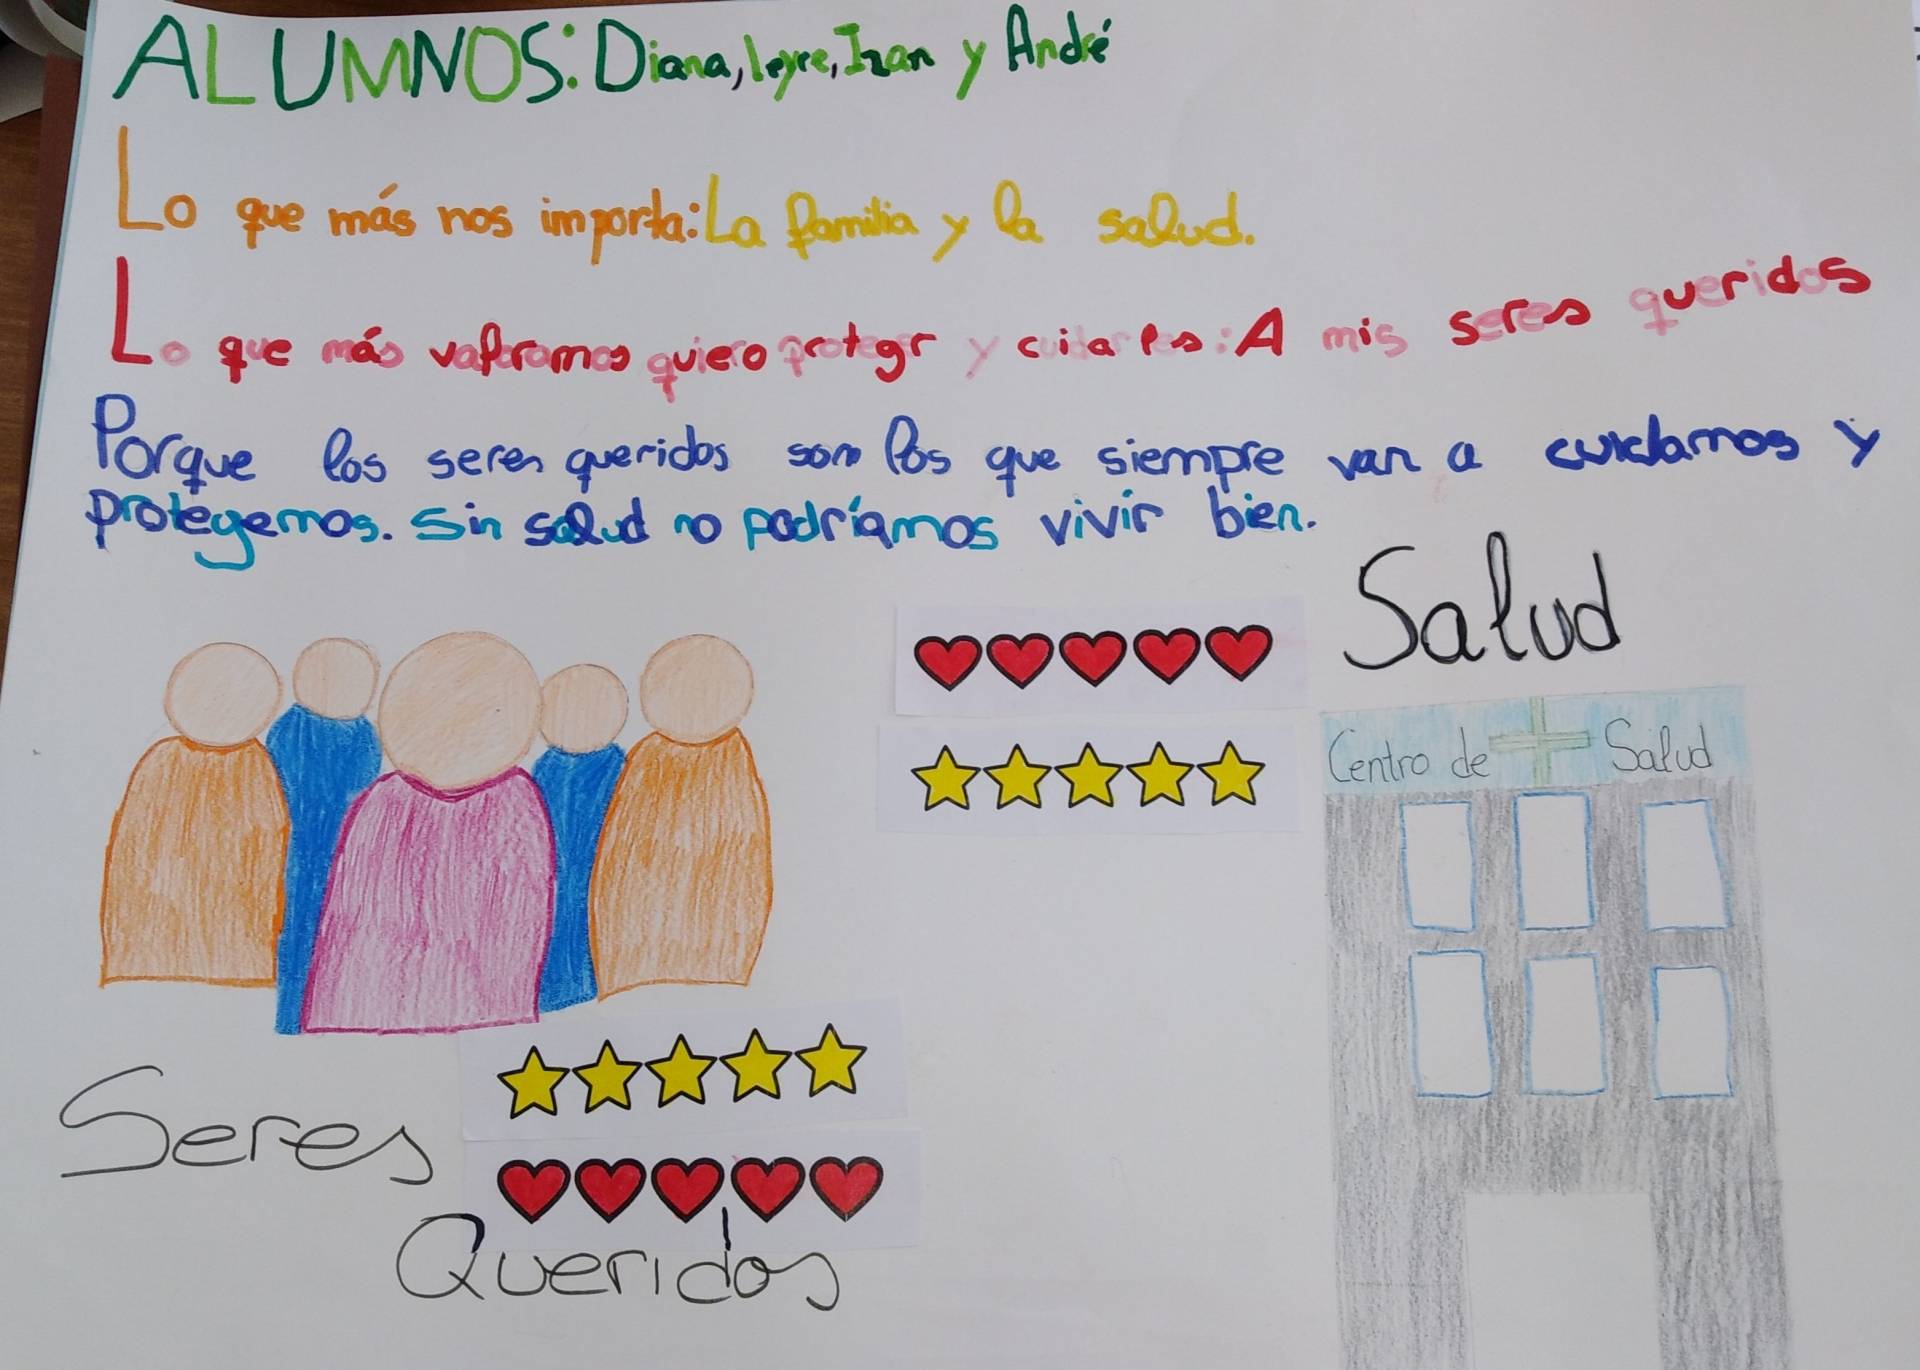 ALUMNOS: Diana, leyre, Izan y André
Lo que más nos importa: La familia y la salud.
Lo que más valoramos quiero proteger y cuidarles: A mis seres queridos
Porque los seres queridos son los que siempre van a cuidarnos y
protegernos. Sin salud no podríamos vivir bien.
Salud
Centro de Salud
Seres
Queridos